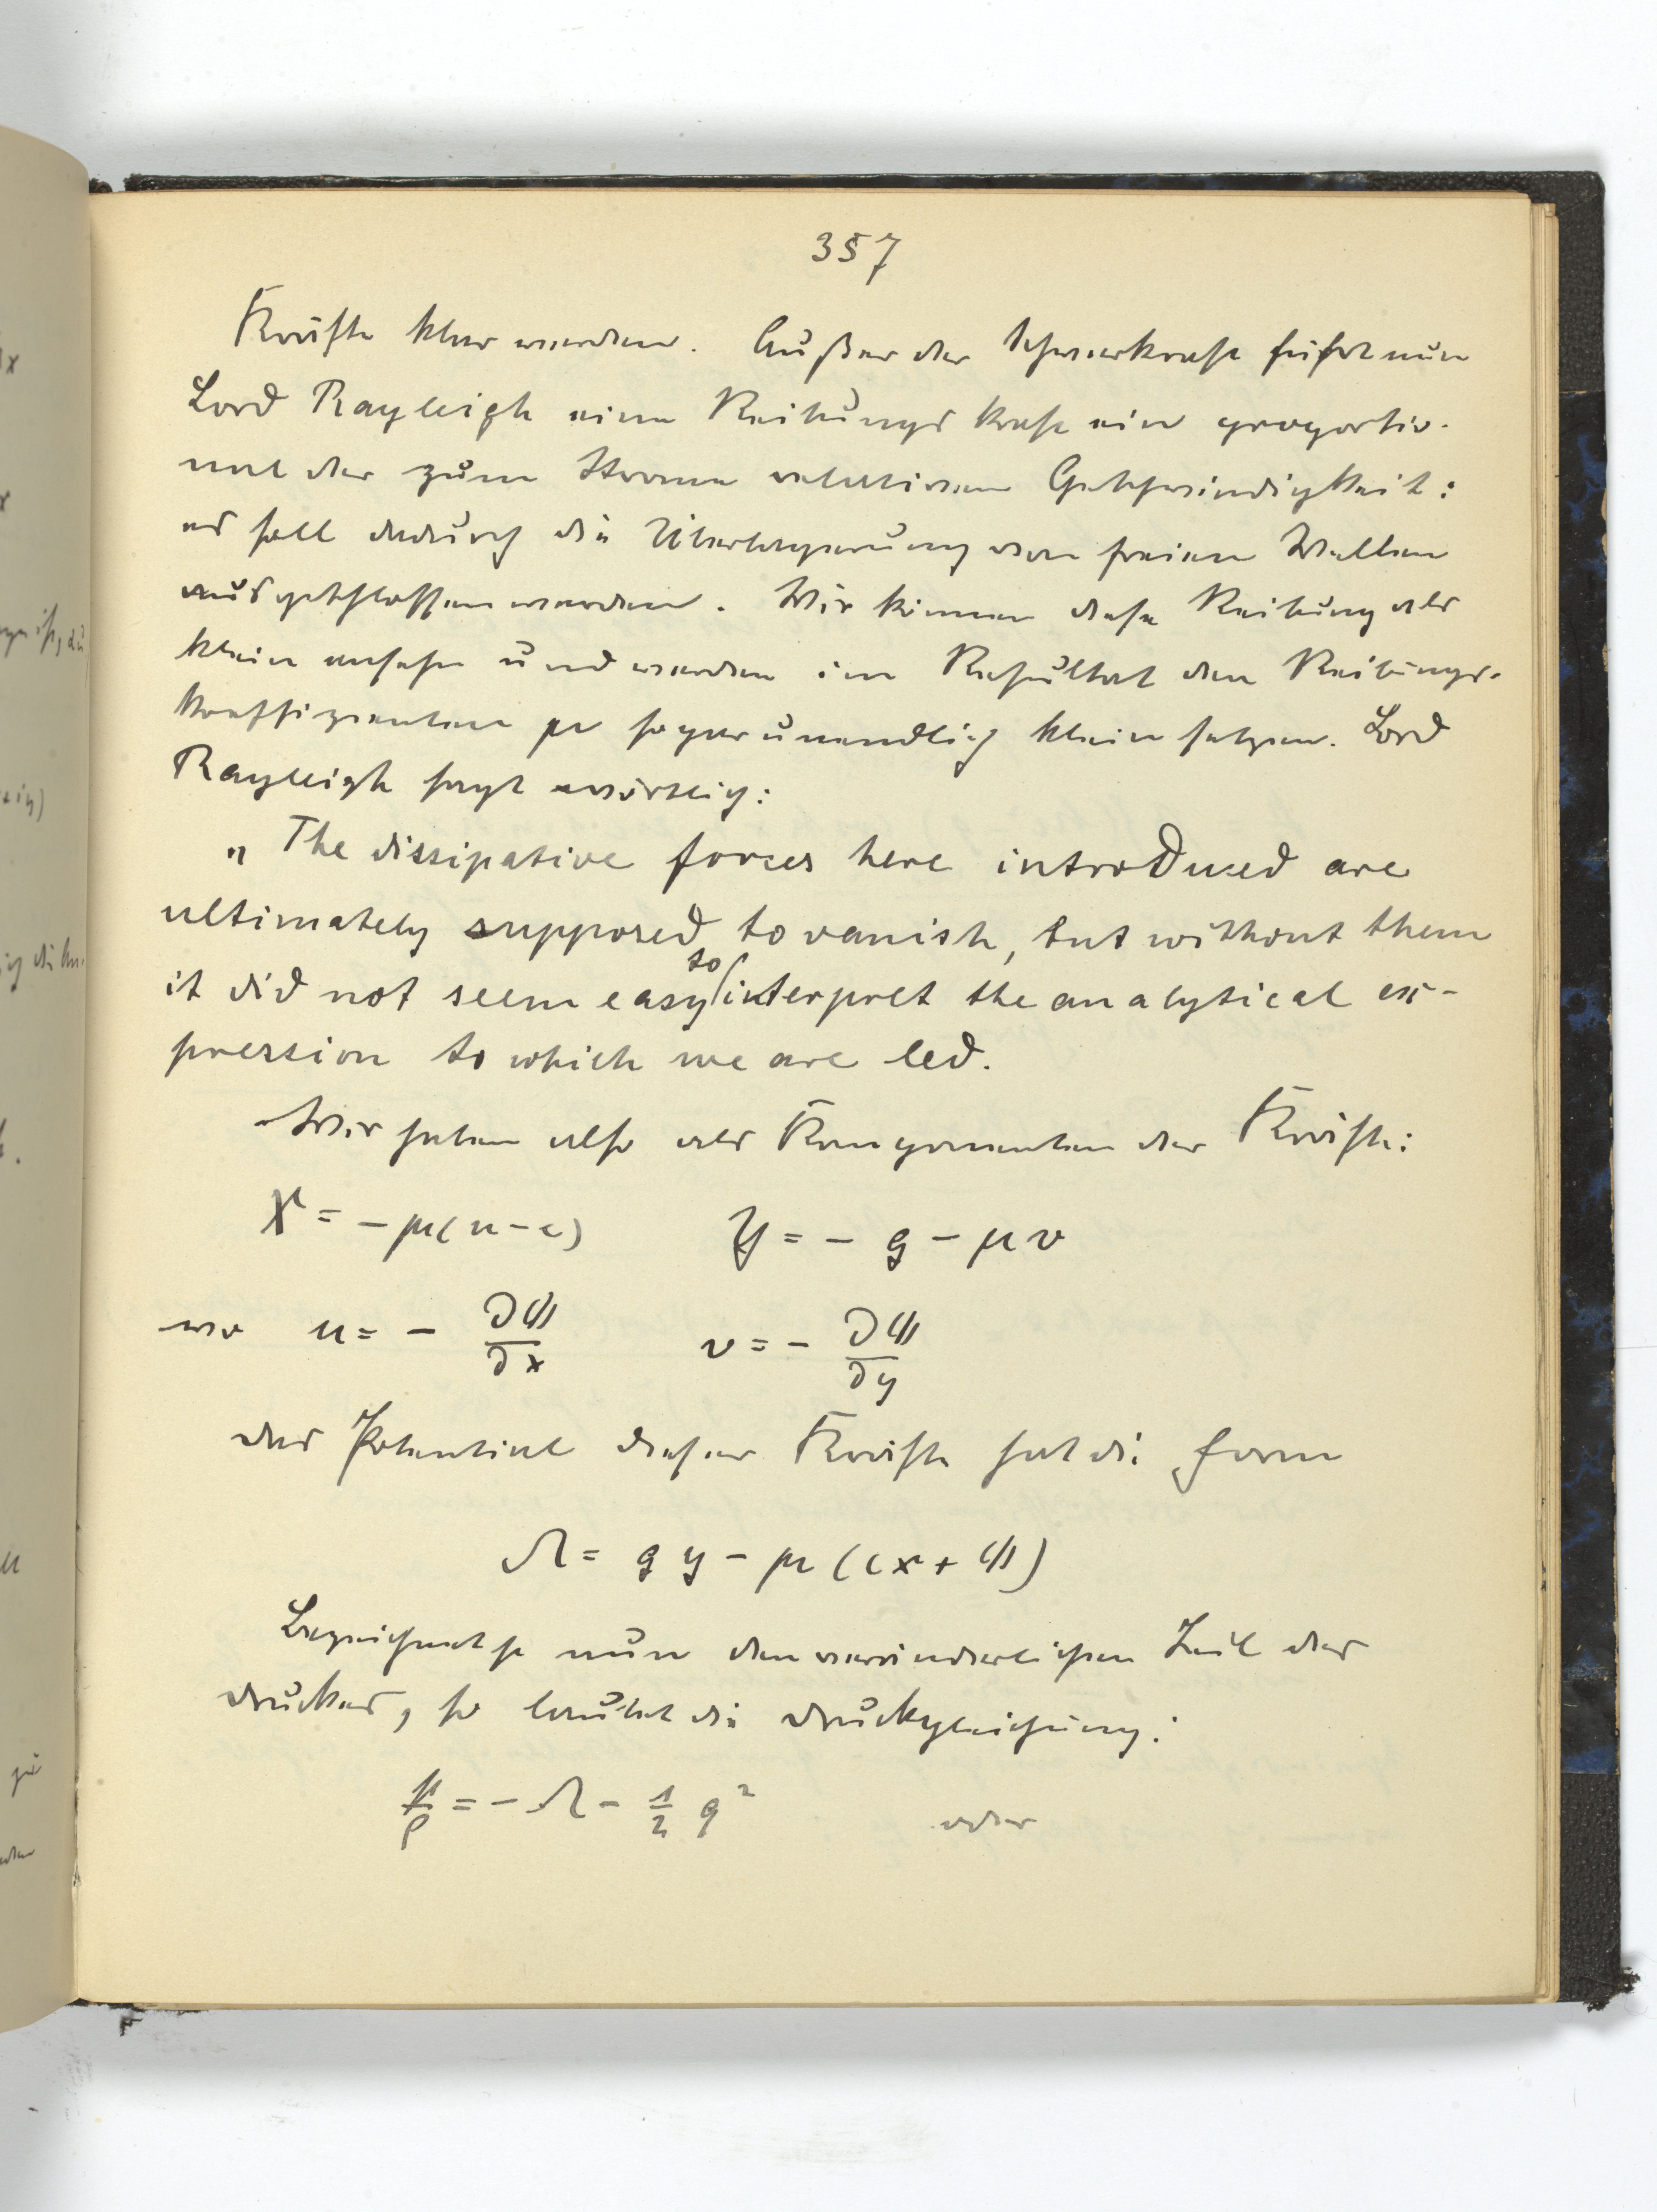 357
Kräfte klar werden. Außer der Schwerkraft führt nun
Lord Rayleigh eine Reibungskraft ein proportio-
nal der zum Strome relativen Geschwindigkeit:
es soll dadurch die Überlagerung von freien Wellen
ausgeschlossen werden. Wir können diese Reibung als
klein ansehen und werden im Resultat den Reibungs-
koeffizienten μ sogar unendlich klein setzen. Lord
Rayleigh sagt wörtlich:
„The dissipative forces here introduced are
ultimately supposed to vanish, but without them
it did not seem easy to interpret the analytical ex-
pression to which we are led.
Wir haben also als Komponenten der Kräfte:
X = - μ(u - c) Y = - g - μv
wo u = - ∂φ/∂x v = - ∂φ/∂y
das Potential dieser Kräfte hat die Form
Ω = gy - μ(cx + φ)
Bezeichnet p nun den veränderlichen Teil des
Druckes, so lautet die Druckgleichung:
p/ρ = - Ω - 1/2 q² oder